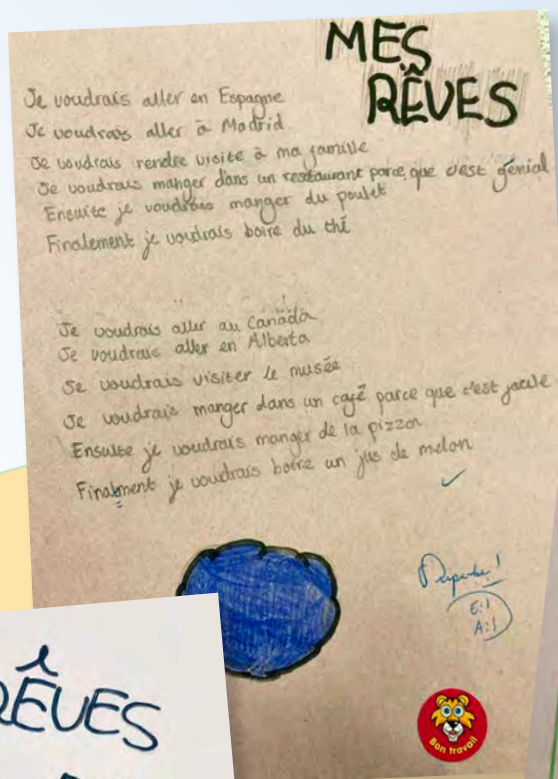 MES
RÊVES
Je voudrais aller en Espagne
Je voudrais aller à Madrid
Je voudrais rendre visite à ma famille
Je voudrais manger dans un restaurant parce que c'est génial
Ensuite je voudrais manger du poulet
Finalement je voudrais boire du thé
Je voudrais aller au Canada
Je voudrais aller en Alberta
Je voudrais visiter le musée
Je voudrais manger dans un café parce que c'est facile
Ensuite je voudrais manger de la pizza
Finalment je voudrais boire un jus de melon
E:1
A:1
Bon travail
RÊVES